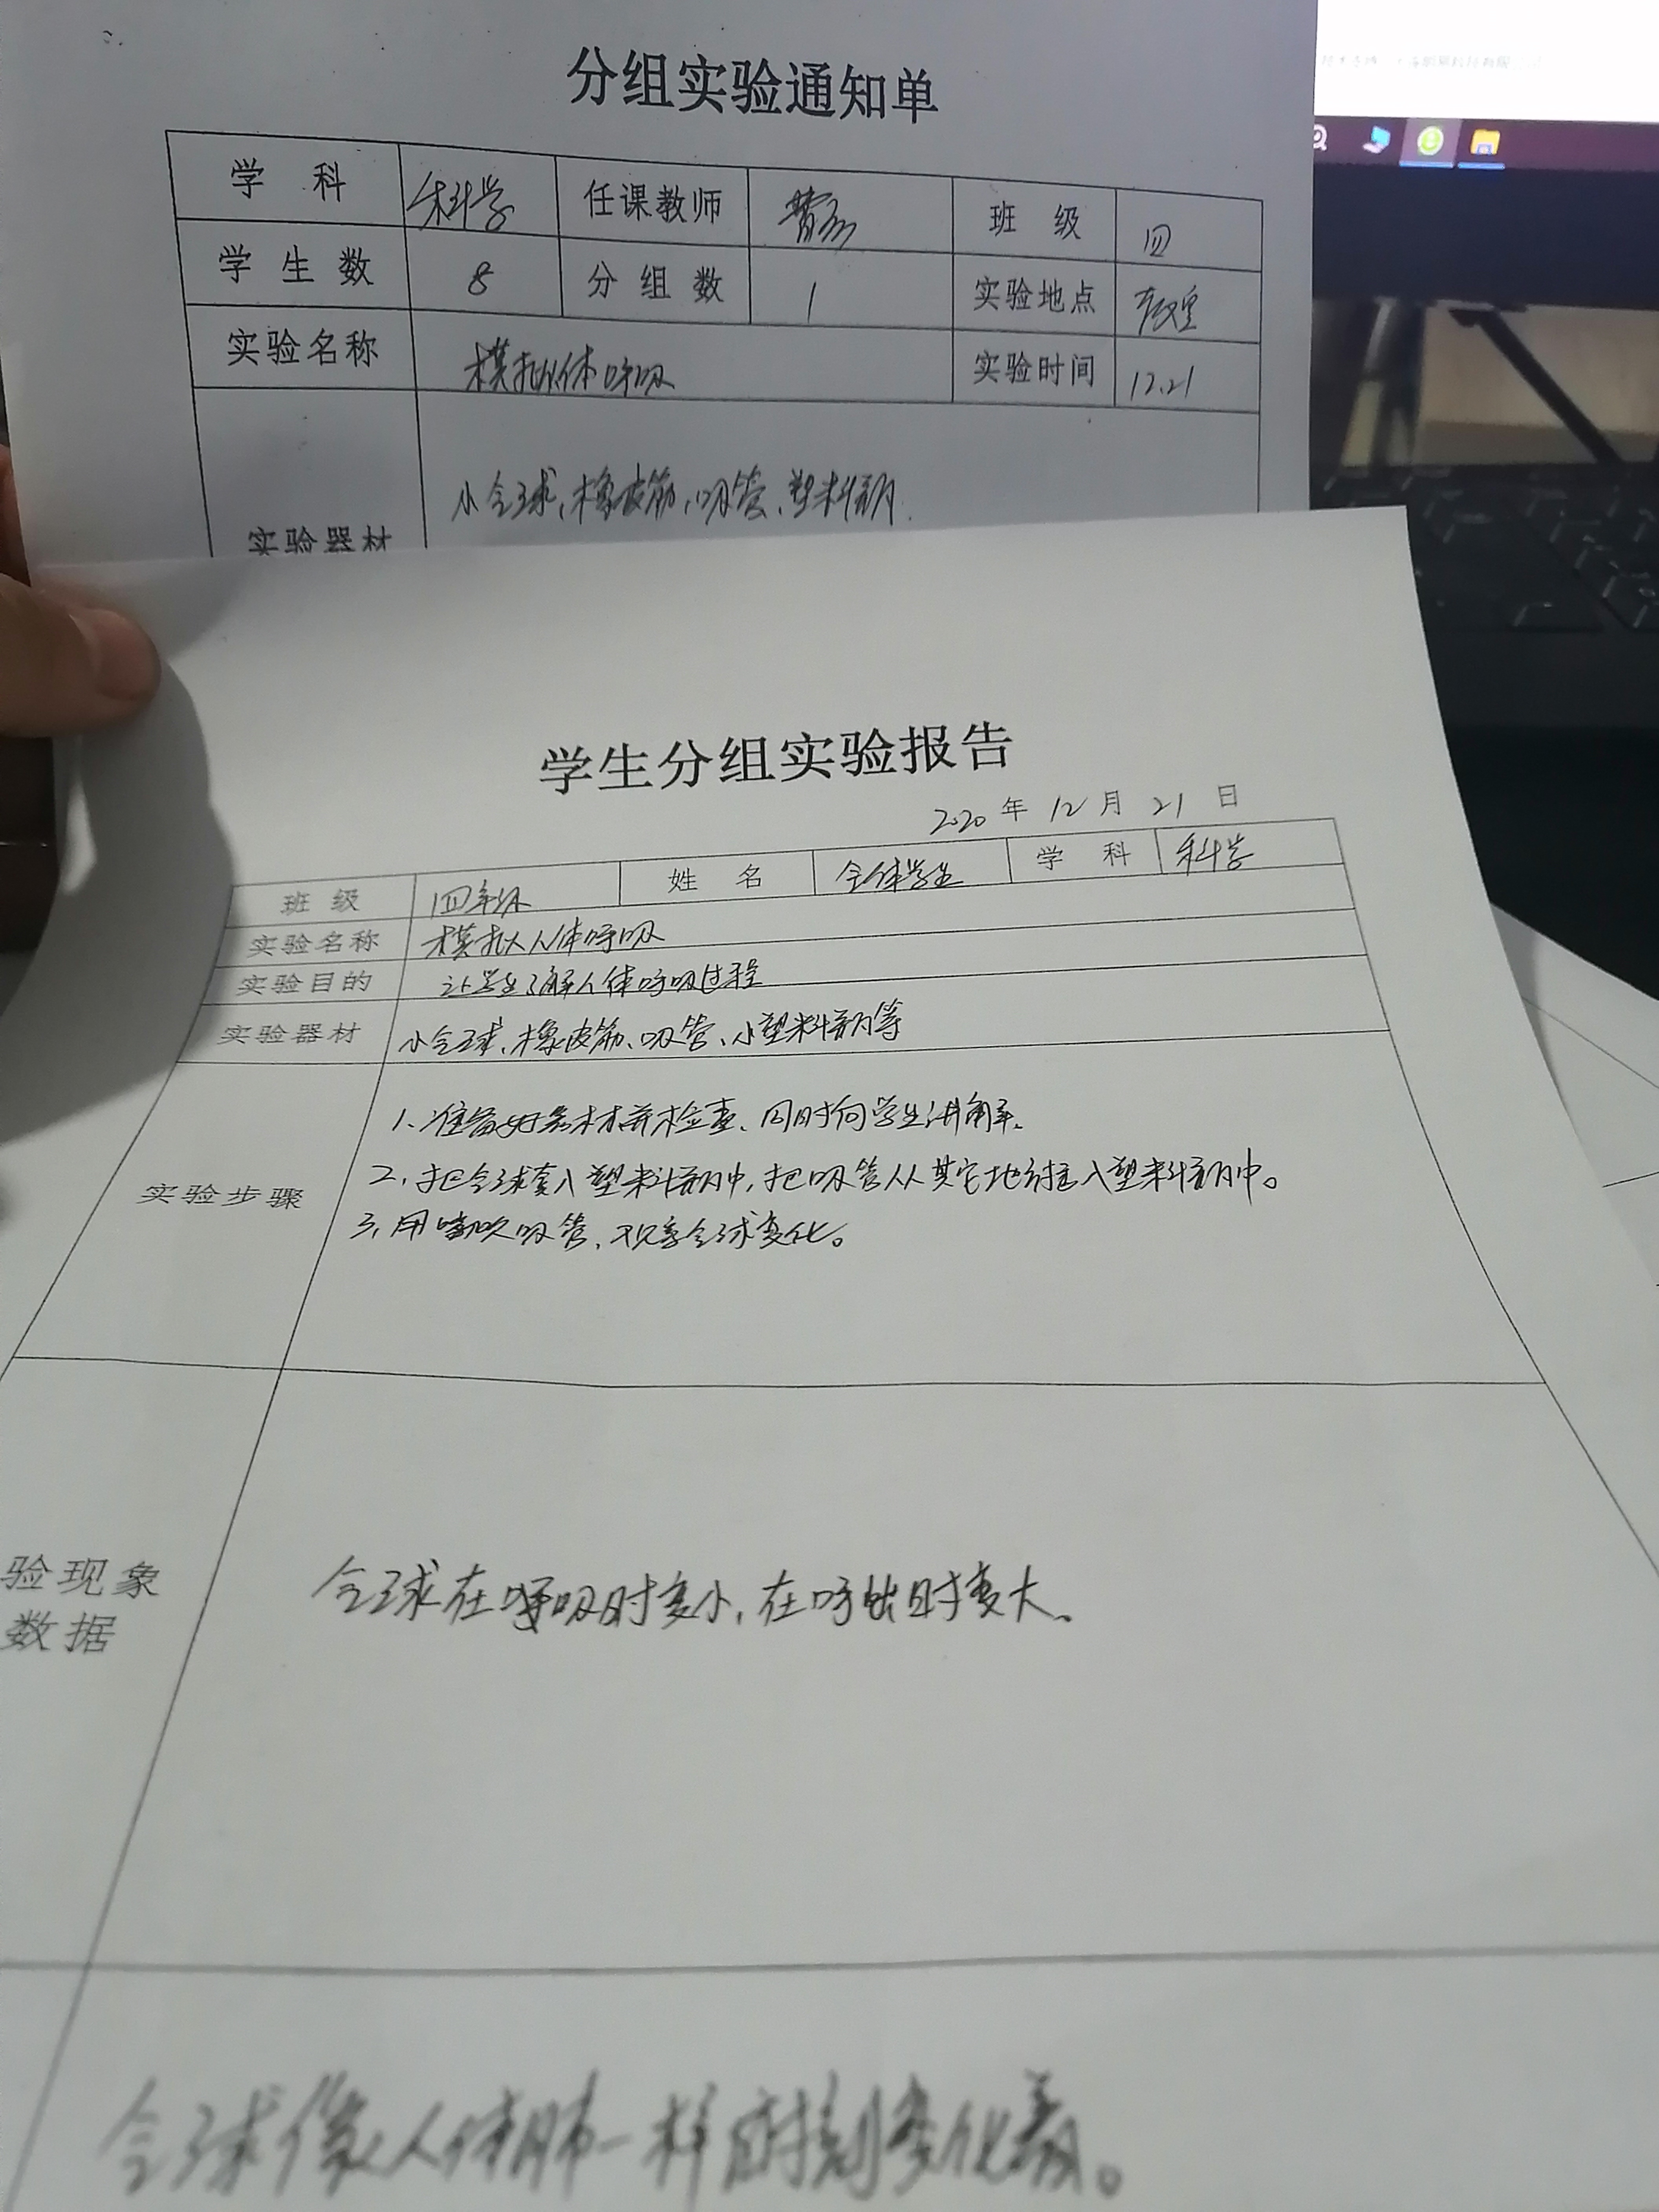 分组实验通知单
学 科 科学 任课教师 班 级 四
学 生 数 8 分 组 数 1 实验地点 教室
实验名称 模拟人体呼吸 实验时间 12.21
实验器材 小气球、橡皮筋、吸管、塑料瓶.
学生分组实验报告
2020 年 12 月 21 日
班 级 四年级 姓 名 全体学生 学 科 科学
实验名称 模拟人体呼吸
实验目的 让学生了解人体呼吸过程
实验器材 小气球、橡皮筋、吸管、小塑料瓶等
实验步骤
1、准备好器材并检查、同时向学生讲解。
2、把气球套入塑料瓶中,把吸管从其它地方插入塑料瓶中。
3、用嘴吹吸管、观看气球变化。
验现象
数据
气球在呼吸时变小,在呼出时变大。
气球像人体肺一样时刻变化着。